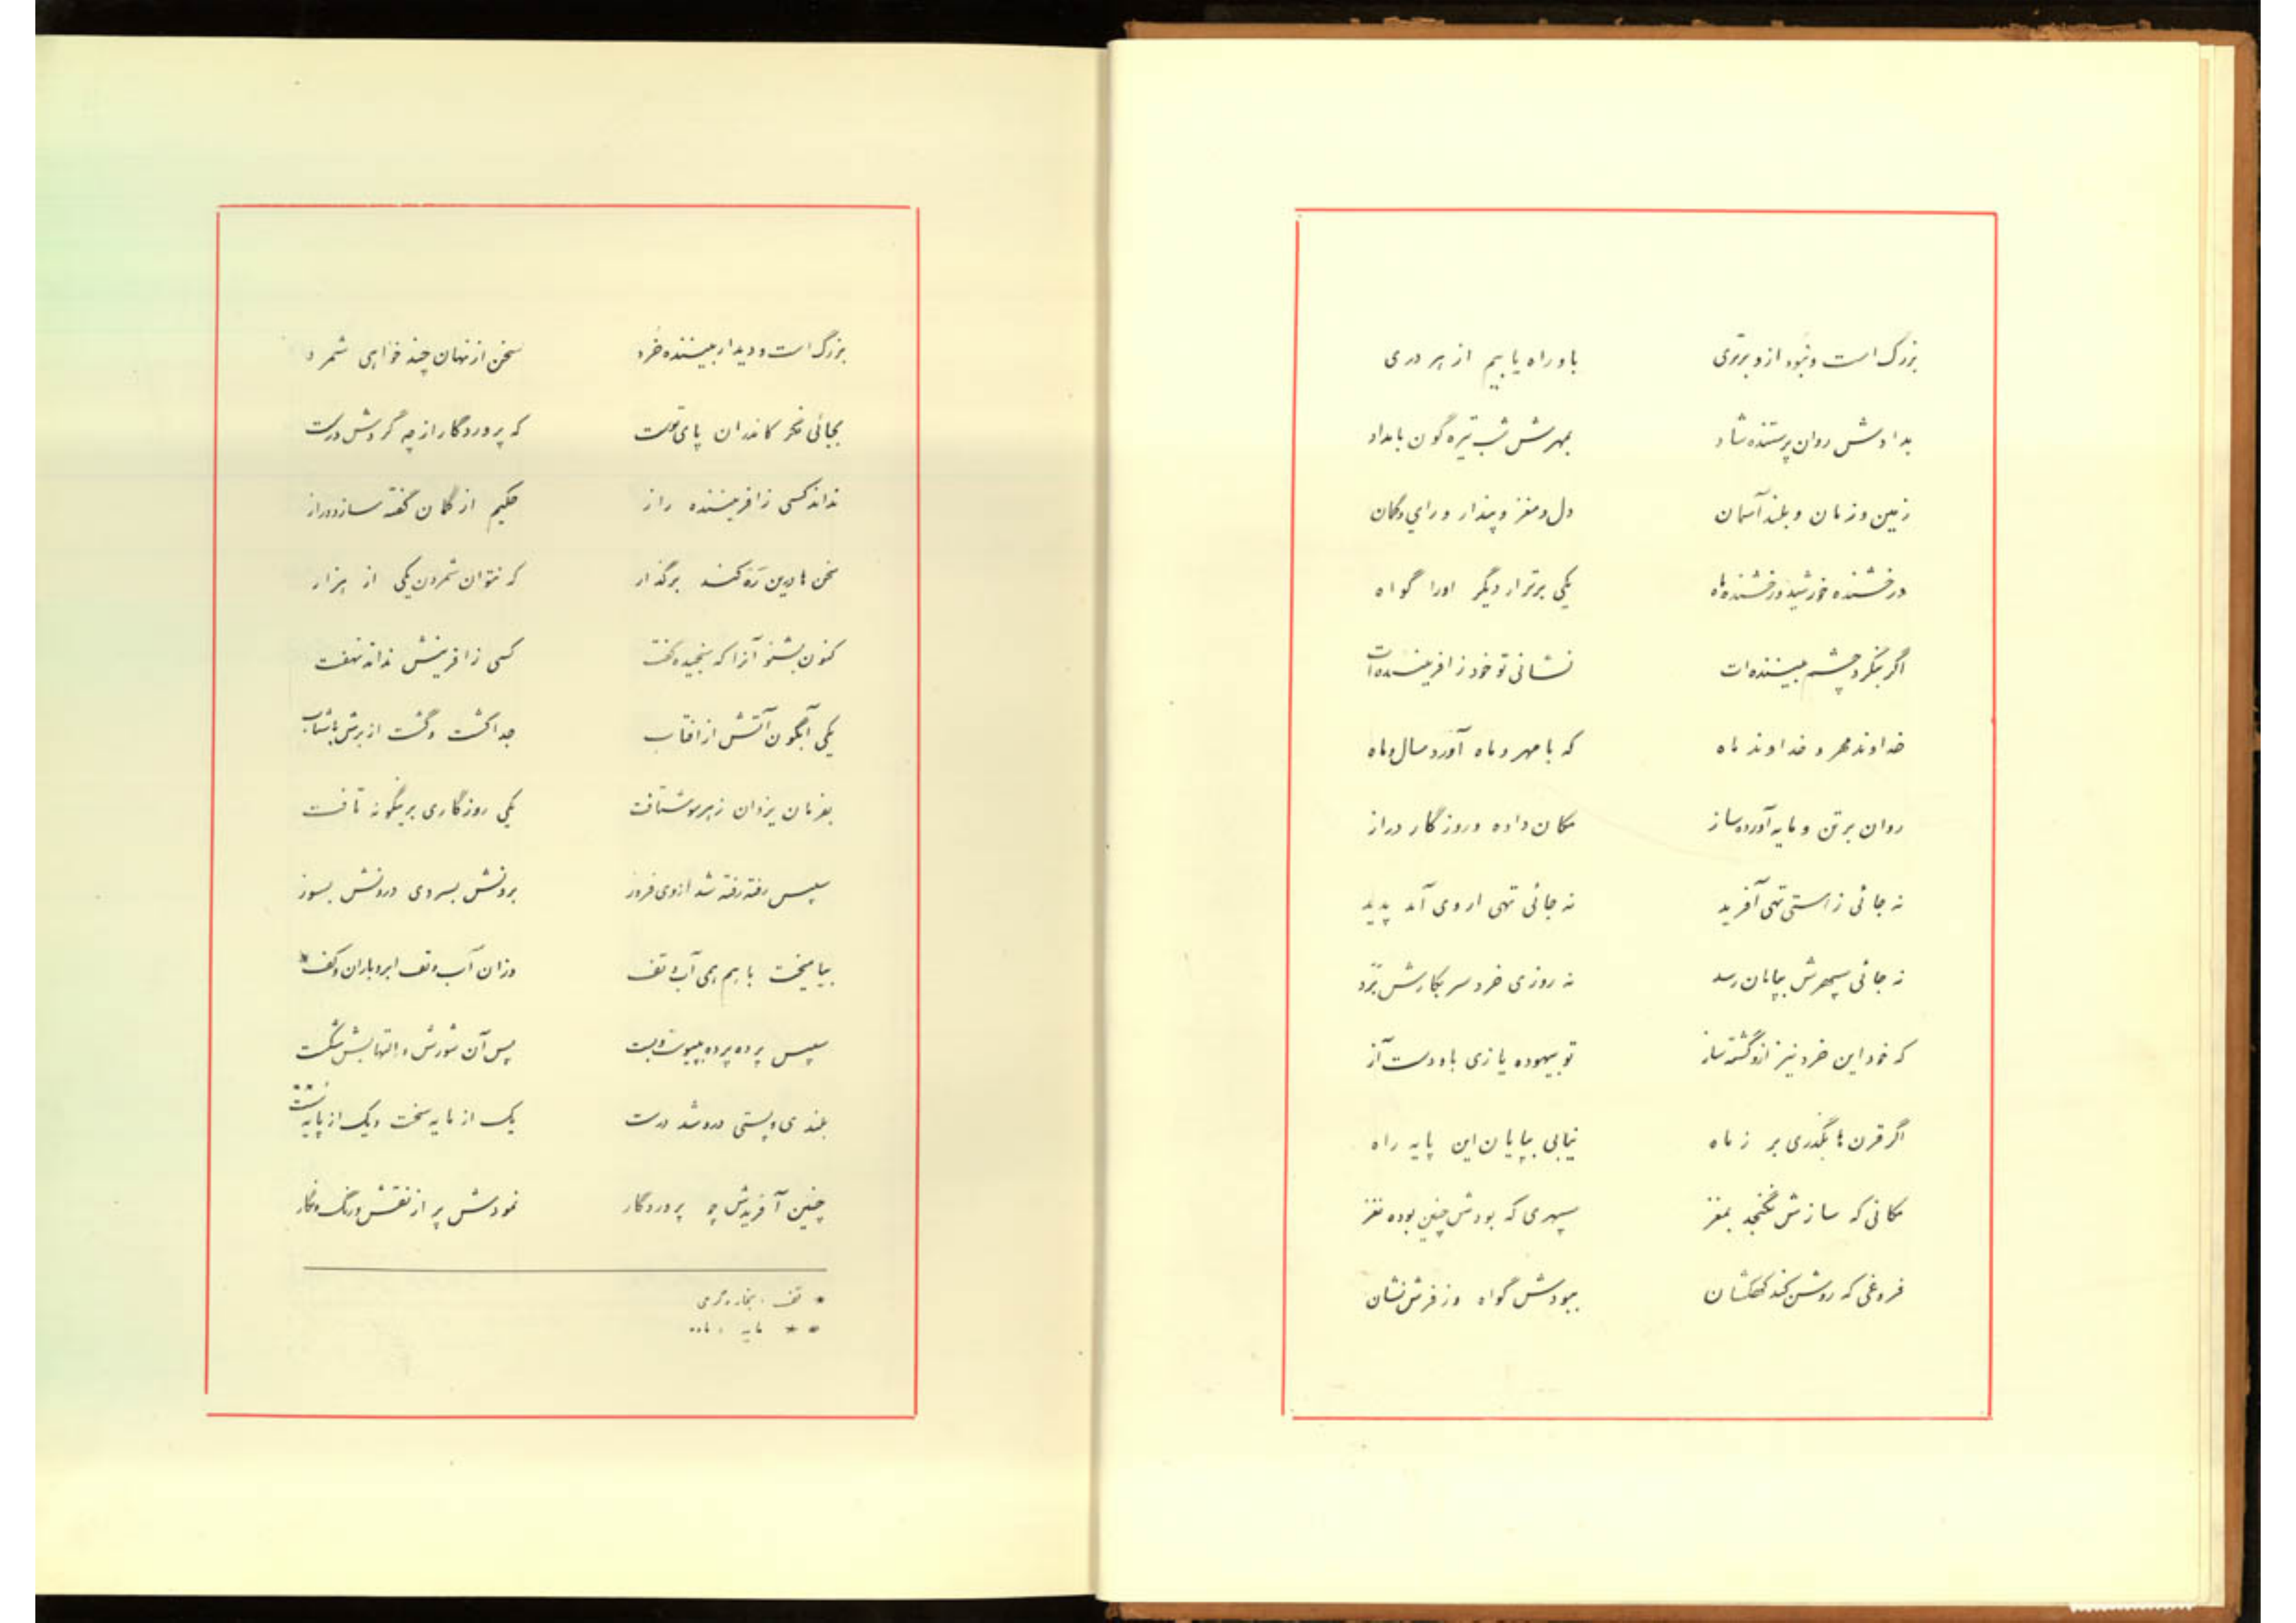 بزرگ است و نبود ازو برتری باو راه یابیم از هر دری
بدادش روان پرستنده شاد بمهرش شب تیره گون بامداد
زمین و زمان و بلند آسمان دل و مغز و پندار و رای و گمان
درخشنده خورشید و رخشنده ماه یکی برتر از دیگر اورا گواه
اگر بنگرد چشم بیننده ات نشانی تو خود ز افریننده ات
خداوند مهر و خداوند ماه که با مهر و ماه آورد سال و ماه
روان بر تن و مایه آورده ساز مکان داده و روزگار دراز
نه جائی ز استی تهی آفرید نه جائی تهی از وی آمد پدید
نه جائی سپهرش بپایان رسد نه روزی خرد سر بکارش بَرَد
که خود این خرد نیز ازو گشته ساز تو بیهوده یازی باو دست آز
اگر قرن ها بگذری بر ز ماه نیابی بپایان این پایه راه
مکانی که سازش نگنجد بمغز سپهری که بودش چنین بوده نغز
فروغی که روشن کند کهکشان ببودش گواه وز فرش نشان
بزرگ است و دیدار بیننده خُرد سخن از نهان چند خواهی شمرد
بجائی نگر کاندران پای تست که پروردگار از چه گردش درست
نداند کسی ز افریننده راز حکیم از گمان گفته سازد دراز
سخن ها درین رَه کند برگذار که نتوان شمردن یکی از هزار
کنون بشنو آنرا که سنجیده گفت کسی ز افرینش نداند نهفت
یکی آبگون آتش از افتاب جدا گشت و گشت از برش با شتاب
بفرمان یزدان ز هر سو شتافت یکی روزگاری برینگونه تافت
سپس رفته رفته شد از وی فروز برونش بسردی درونش بسوز
بیامیخت با هم همی آب و تف وزان آب و تف ابر و باران و کف *
سپس پرده پرده بپیوست و بست پس آن شورش و التهابش شکست
بلندی و پستی درو شد درست یک از مایه سخت و یک از پایه سُست **
چنین آفریدش چو پروردگار نمودش پر از نقش و رنگ و نگار
* تف : بخار و گرمی
** مایه : ماده